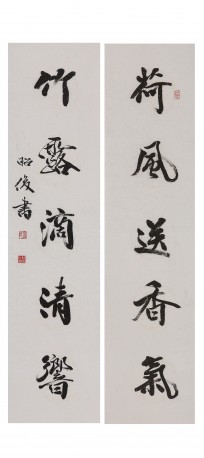 荷風送香氣
竹露滴清響
昭俊書